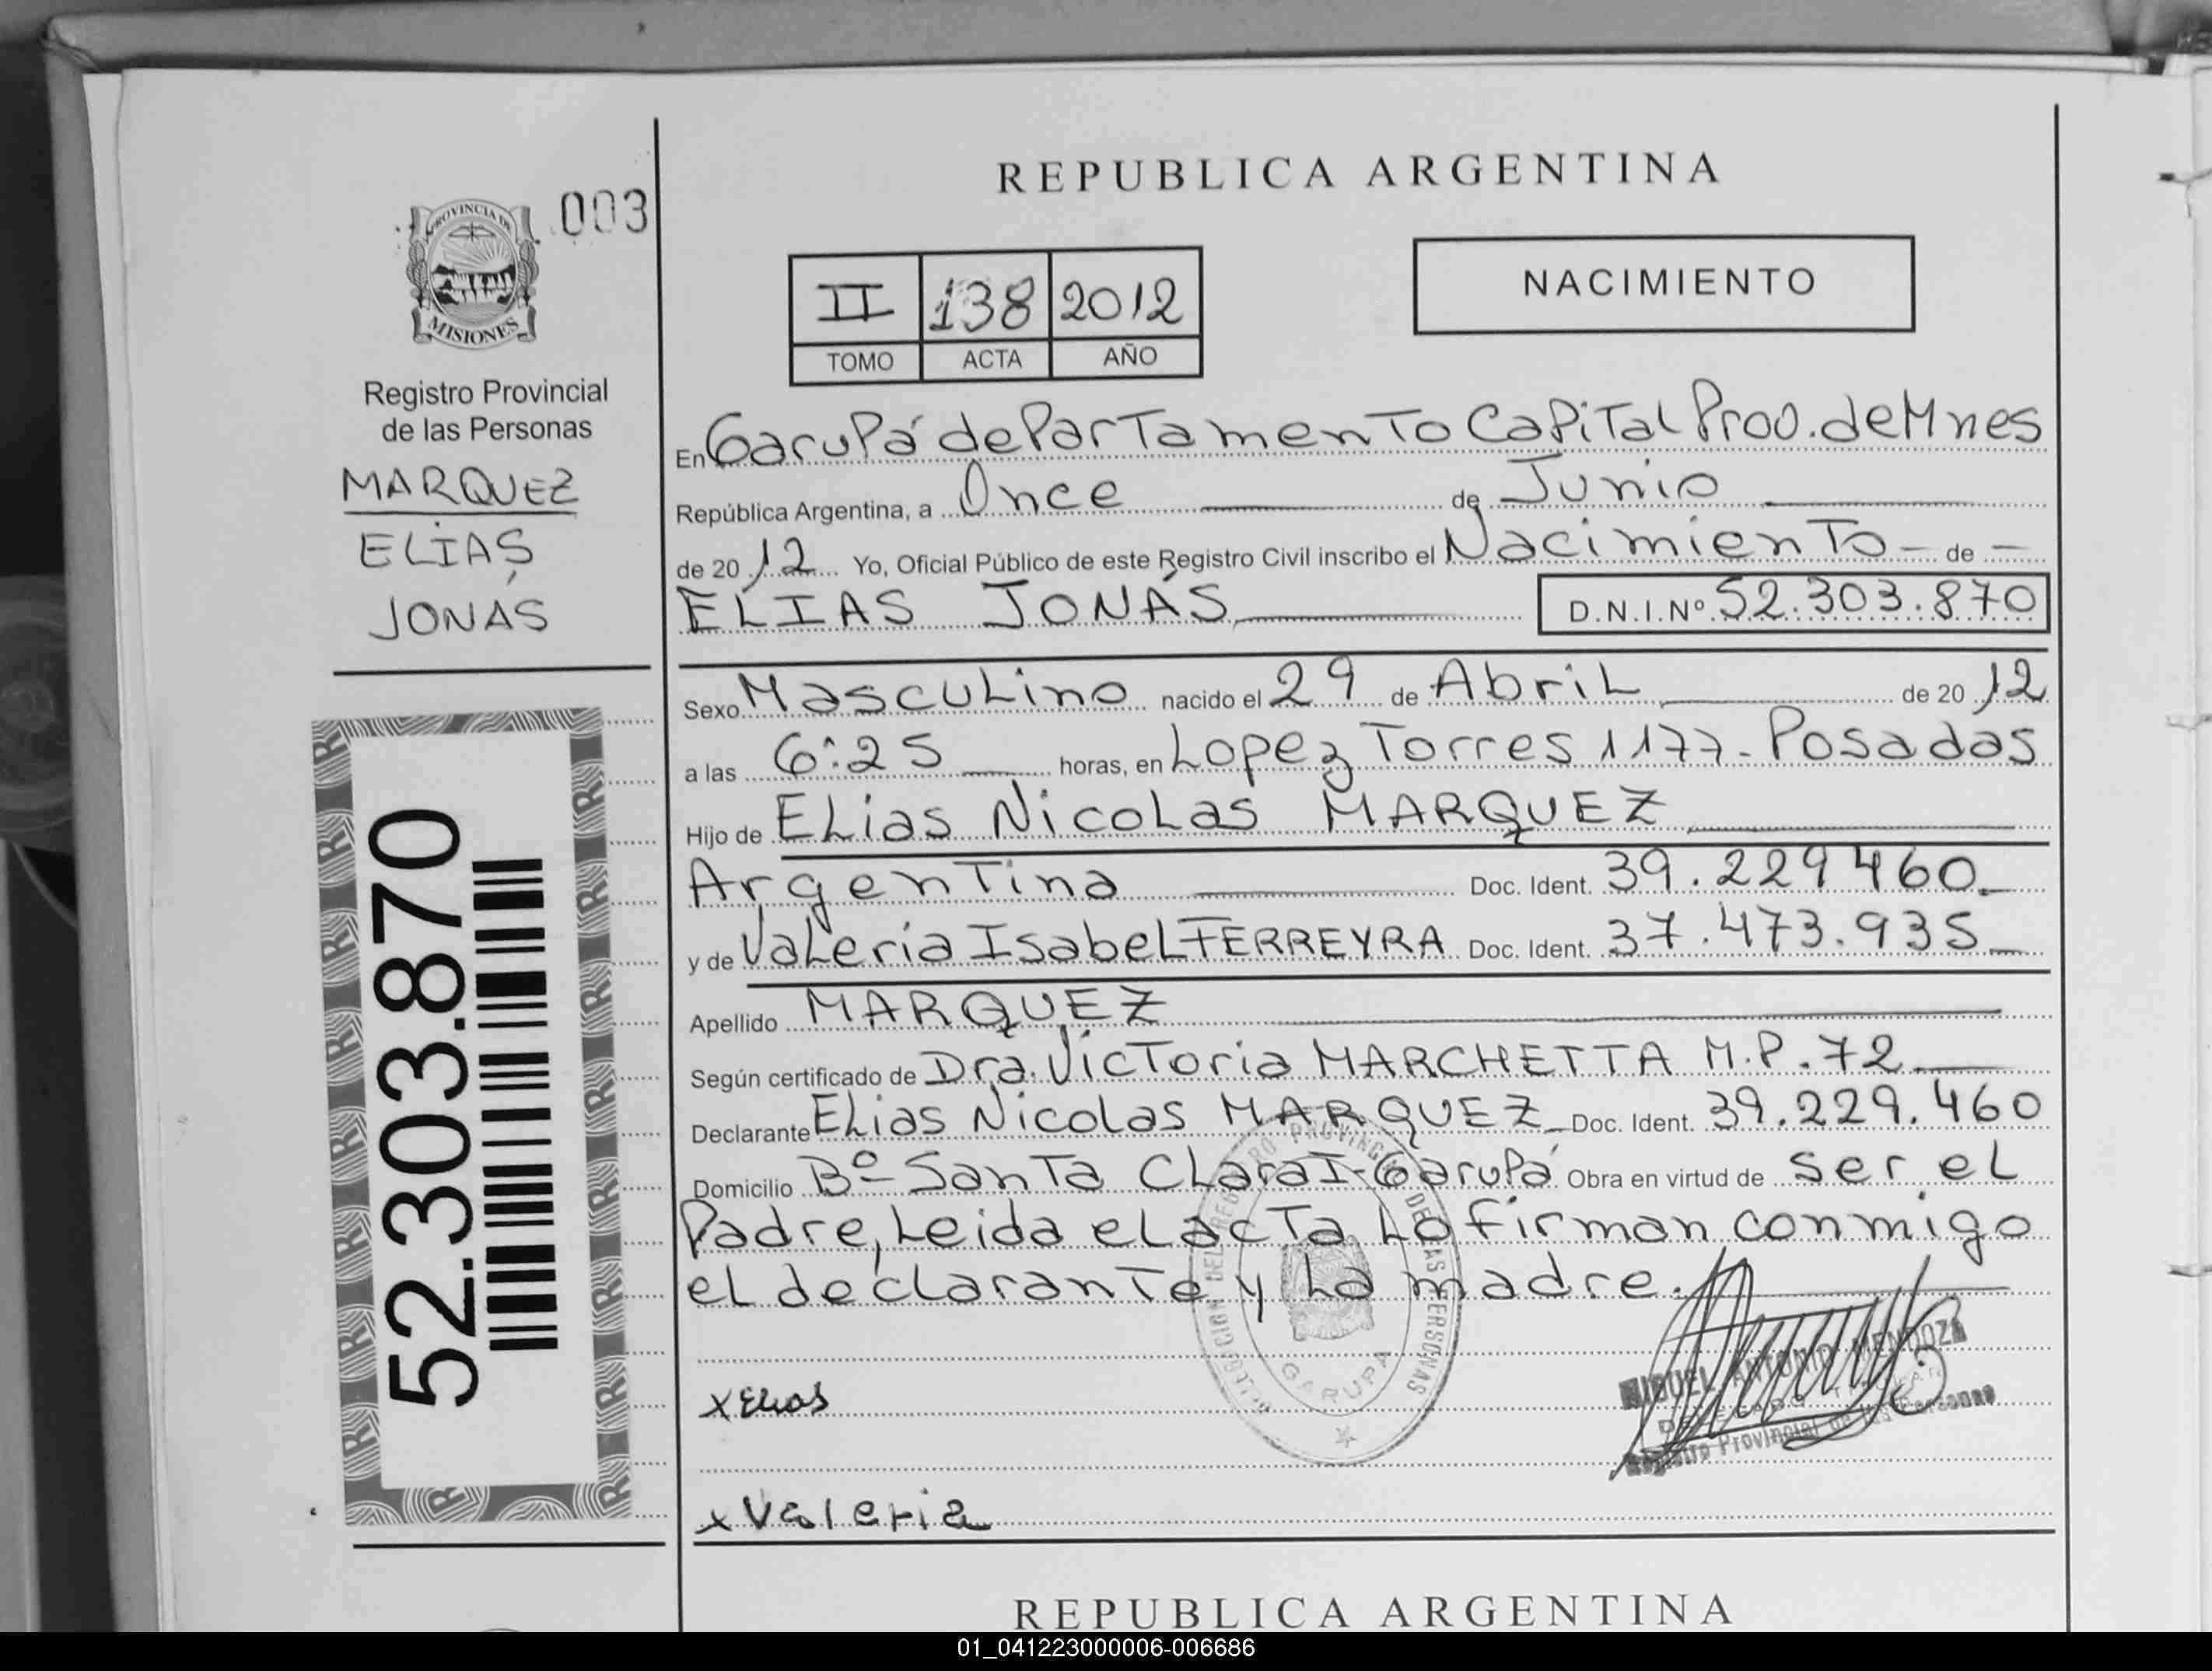 REPUBLICA ARGENTINA
PROVINCIA DE
MISIONES
003
Registro Provincial
de las Personas
MARQUEZ
ELIAS
JONÁS
52.303.870
II 138 2012
TOMO ACTA AÑO
NACIMIENTO
En Garupá departamento Capital Prov. de Mnes
República Argentina, a Once de Junio
de 20 12 Yo, Oficial Público de este Registro Civil inscribo el Nacimiento - de -
ELIAS JONÁS D.N.I.Nº 52.303.870
Sexo Masculino nacido el 29 de Abril de 20 12
a las 6:25 horas, en Lopez Torres 1177 - Posadas
Hijo de Elias Nicolas MARQUEZ
Argentina Doc. Ident. 39.229460
y de Valeria Isabel FERREYRA Doc. Ident. 37.473.935
Apellido MARQUEZ
Según certificado de Dra. Victoria MARCHETTA M.P. 72
Declarante Elias Nicolas MARQUEZ Doc. Ident. 39.229.460
Domicilio Bº Santa Clara I - Garupá Obra en virtud de ser el
Padre, Leida el acta lo firman conmigo
el declarante y la madre.
GARUPA
MIGUEL ANTONIO MENDOZA
Registro Provincial de las Personas
x Elias
x Valeria
REPUBLICA ARGENTINA
01_041223000006-006686